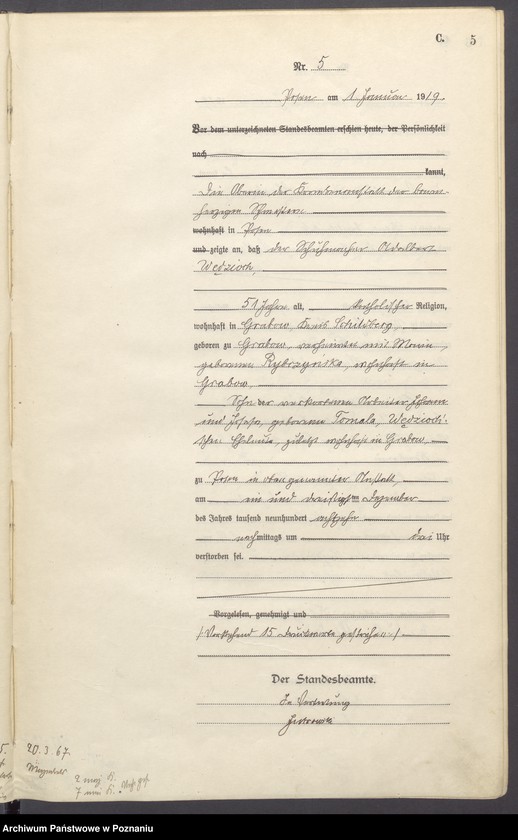 C. 5
Nr. 5
Posen am 1 Januar 1919.
Vor dem unterzeichneten Standesbeamten erschien heute, der Persönlichkeit
nach
kannt,
Die Oberin der Krankenanstalt der barm-
herzigen Schwestern
wohnhaft in Posen
und zeigte an, daß der Schuhmacher Adalbert
Wędzioch,
51 Jahre alt, katholischer Religion,
wohnhaft in Grabow, Kreis Schildberg,
geboren zu Grabow, verheiratet mit Maria,
geborenen Rybczyńska, wohnhaft in
Grabow,
Sohn der verstorbenen Arbeiter
und Josefa, geborenen Tomala, Wędzioch'-
schen Eheleute, zuletzt wohnhaft in Grabow
zu Posen in obengenannter Anstalt,
am ein und dreißigsten Dezember
des Jahres tausend neunhundert achtzehn
nachmittags um drei Uhr
verstorben sei.
Vorgelesen, genehmigt und
/Vorstehend 15 Druckworte gestrichen./
Der Standesbeamte.
In Vertretung
20.3.67.
Archiwum Państwowe w Poznaniu